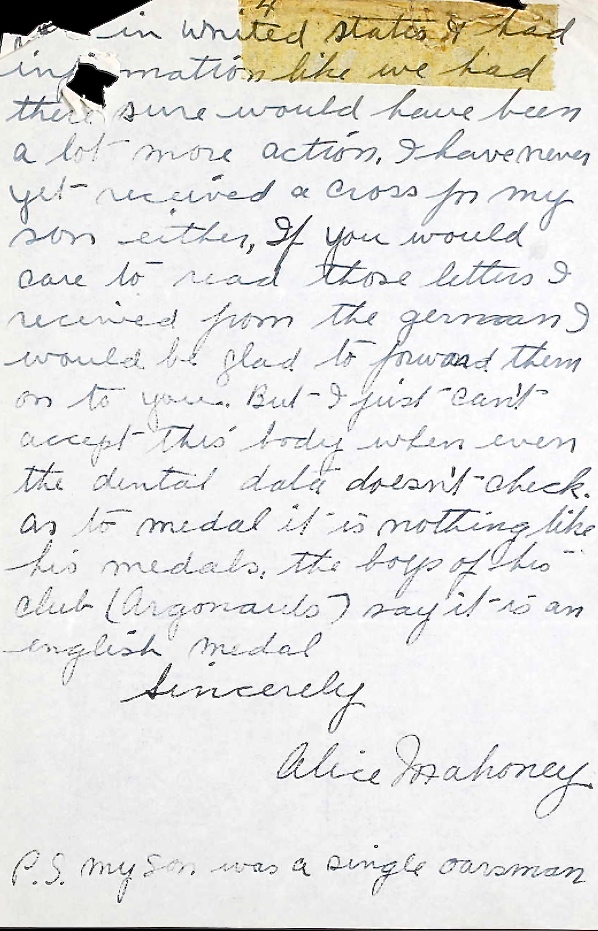 4
in United States & had
inf mation like we had
there sure would have been
a lot more action. I have never
yet received a cross for my
son either, If you would
care to read those letters I
received from the german I
would be glad to forward them
on to you. But I just can't
accept this body when even
the dental data doesn't check.
as to medal it is nothing like
his medals. the boys of his
club (Argonauts) say it is an
english medal
Sincerely
Alice Mahoney
P.S. my son was a single oarsman